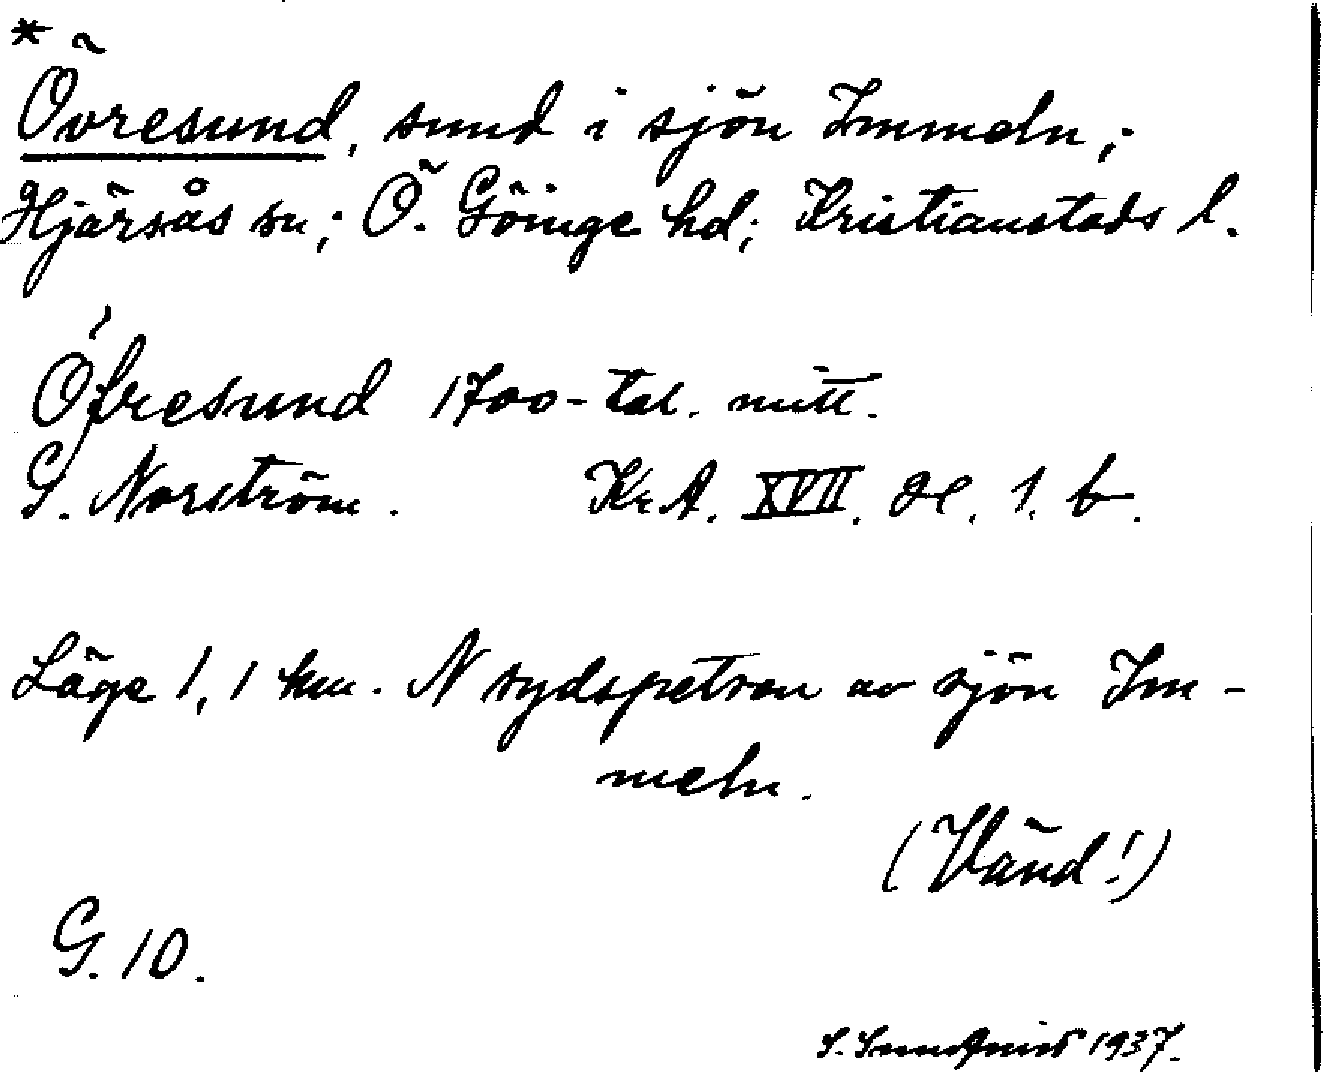 *
Övresund, sund i sjön Immeln;
Hjärsås sn; Ö. Göinge hd; Kristianstads l.
Öfresund 1700-tal. mitt.
G. Norström. Kr.A. XVII. Sk. 1. b.
Läge 1,1 km. N sydspetsen av sjön Im-
meln.
(Vänd!)
G. 10.
S. Sundqvist 1937.